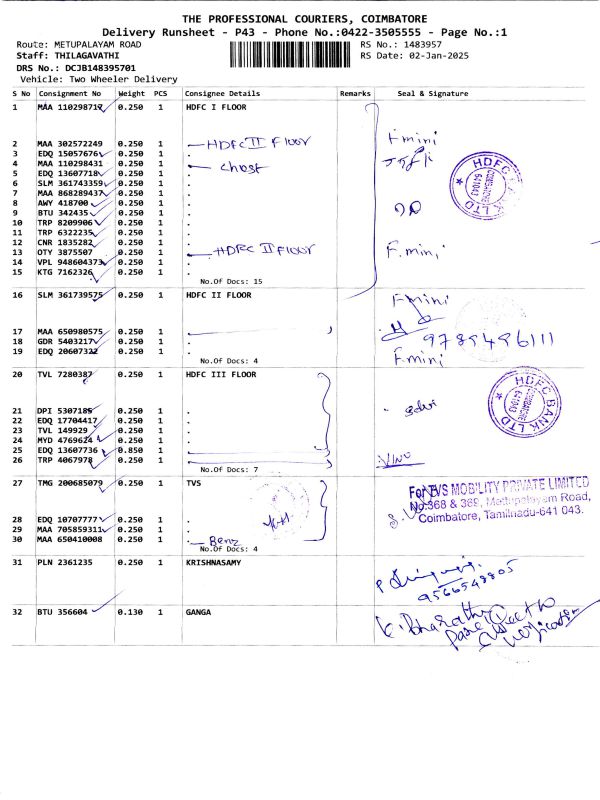 THE PROFESSIONAL COURIERS, COIMBATORE
Delivery Runsheet - P43 - Phone No.:0422-3505555 - Page No.:1
Route: METUPALAYAM ROAD RS No.: 1483957
Staff: THILAGAVATHI RS Date: 02-Jan-2025
DRS No.: DCJB148395701
Vehicle: Two Wheeler Delivery
S No Consignment No Weight PCS Consignee Details Remarks Seal & Signature
1 MAA 110298717 0.250 1 HDFC I FLOOR
2 MAA 302572249 0.250 1 . HDFC II Floor F mini
3 EDQ 15057676 0.250 1 .
4 MAA 110298431 0.250 1 .
5 EDQ 13607718 0.250 1 .
6 SLM 361743359 0.250 1 .
7 MAA 868289437 0.250 1 .
8 AWY 418700 0.250 1 .
9 BTU 342435 0.250 1 .
10 TRP 8209906 0.250 1 .
11 TRP 6322235 0.250 1 .
12 CNR 1835282 0.250 1 .
13 OTY 3875507 0.250 1 . HDFC II Floor F.mini
14 VPL 948604373 0.250 1 .
15 KTG 7162326 0.250 1 .
No.Of Docs: 15
HDFC BANK LTD
COIMBATORE
641043
16 SLM 361739575 0.250 1 HDFC II FLOOR F mini
17 MAA 650980575 0.250 1 .
18 GDR 5403217 0.250 1 . 9789496111
19 EDQ 20607322 0.250 1 . F.mini
No.Of Docs: 4
20 TVL 7280387 0.250 1 HDFC III FLOOR
21 DPI 5307185 0.250 1 .
22 EDQ 17704417 0.250 1 .
23 TVL 149929 0.250 1 .
24 MYD 4769624 0.250 1 .
25 EDQ 13607736 0.850 1 .
26 TRP 4067978 0.250 1 .
No.Of Docs: 7
HDFC BANK LTD
COIMBATORE
641043
27 TMG 200685079 0.250 1 TVS
28 EDQ 10707777 0.250 1 .
29 MAA 705859311 0.250 1 .
30 MAA 650410008 0.250 1 . Benz
No.Of Docs: 4
For TVS MOBILITY PRIVATE LIMITED
No:368 & 369, Mettupalayam Road,
Coimbatore, Tamilnadu-641 043.
31 PLN 2361235 0.250 1 KRISHNASAMY
9566548805
32 BTU 356604 0.130 1 GANGA
K. Bharathi